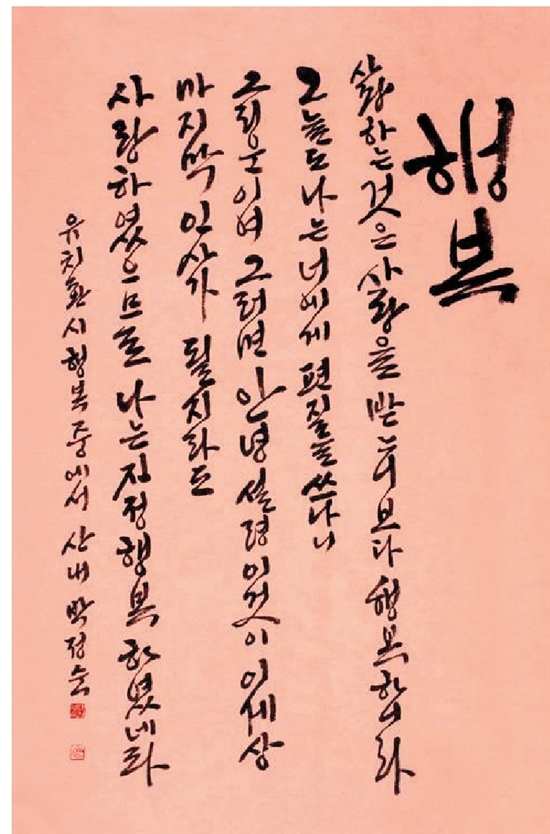 행복
사랑하는 것은 사랑을 받느니보다 행복하나니라
오늘도 나는 너에게 편질를 쓰나니
그리운이여 그러면 안녕 설령 이것이 이 세상
마지막 인사가 될지라도
사랑하였으므로 나는 진정 행복하였네라
유치환 시 행복 중에서 산내 박정순